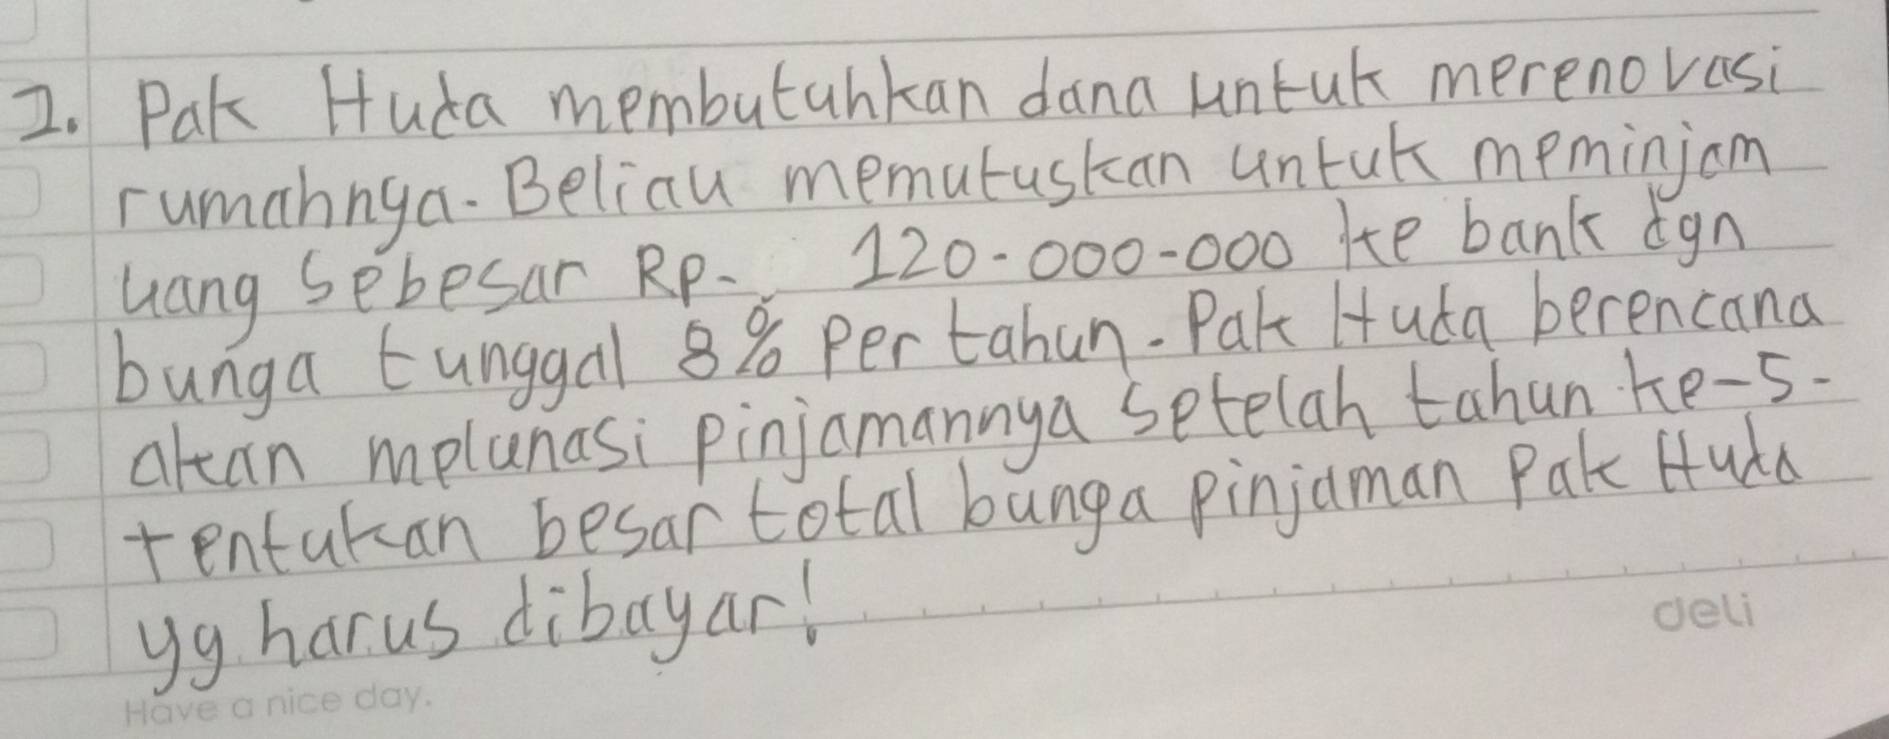 2. Pak Huda membutuhkan dana untuk merenovasi
rumahnya. Beliau memutuskan untuk meminjam
uang sebesar Rp. 120.000.000 ke bank dgn
bunga tunggal 8% per tahun. Pak Huda berencana
akan melunasi pinjamannya setelah tahun ke-5.
tentukan besar total bunga pinjaman Pak Huda
yg harus dibayar!
deli
Have a nice day.